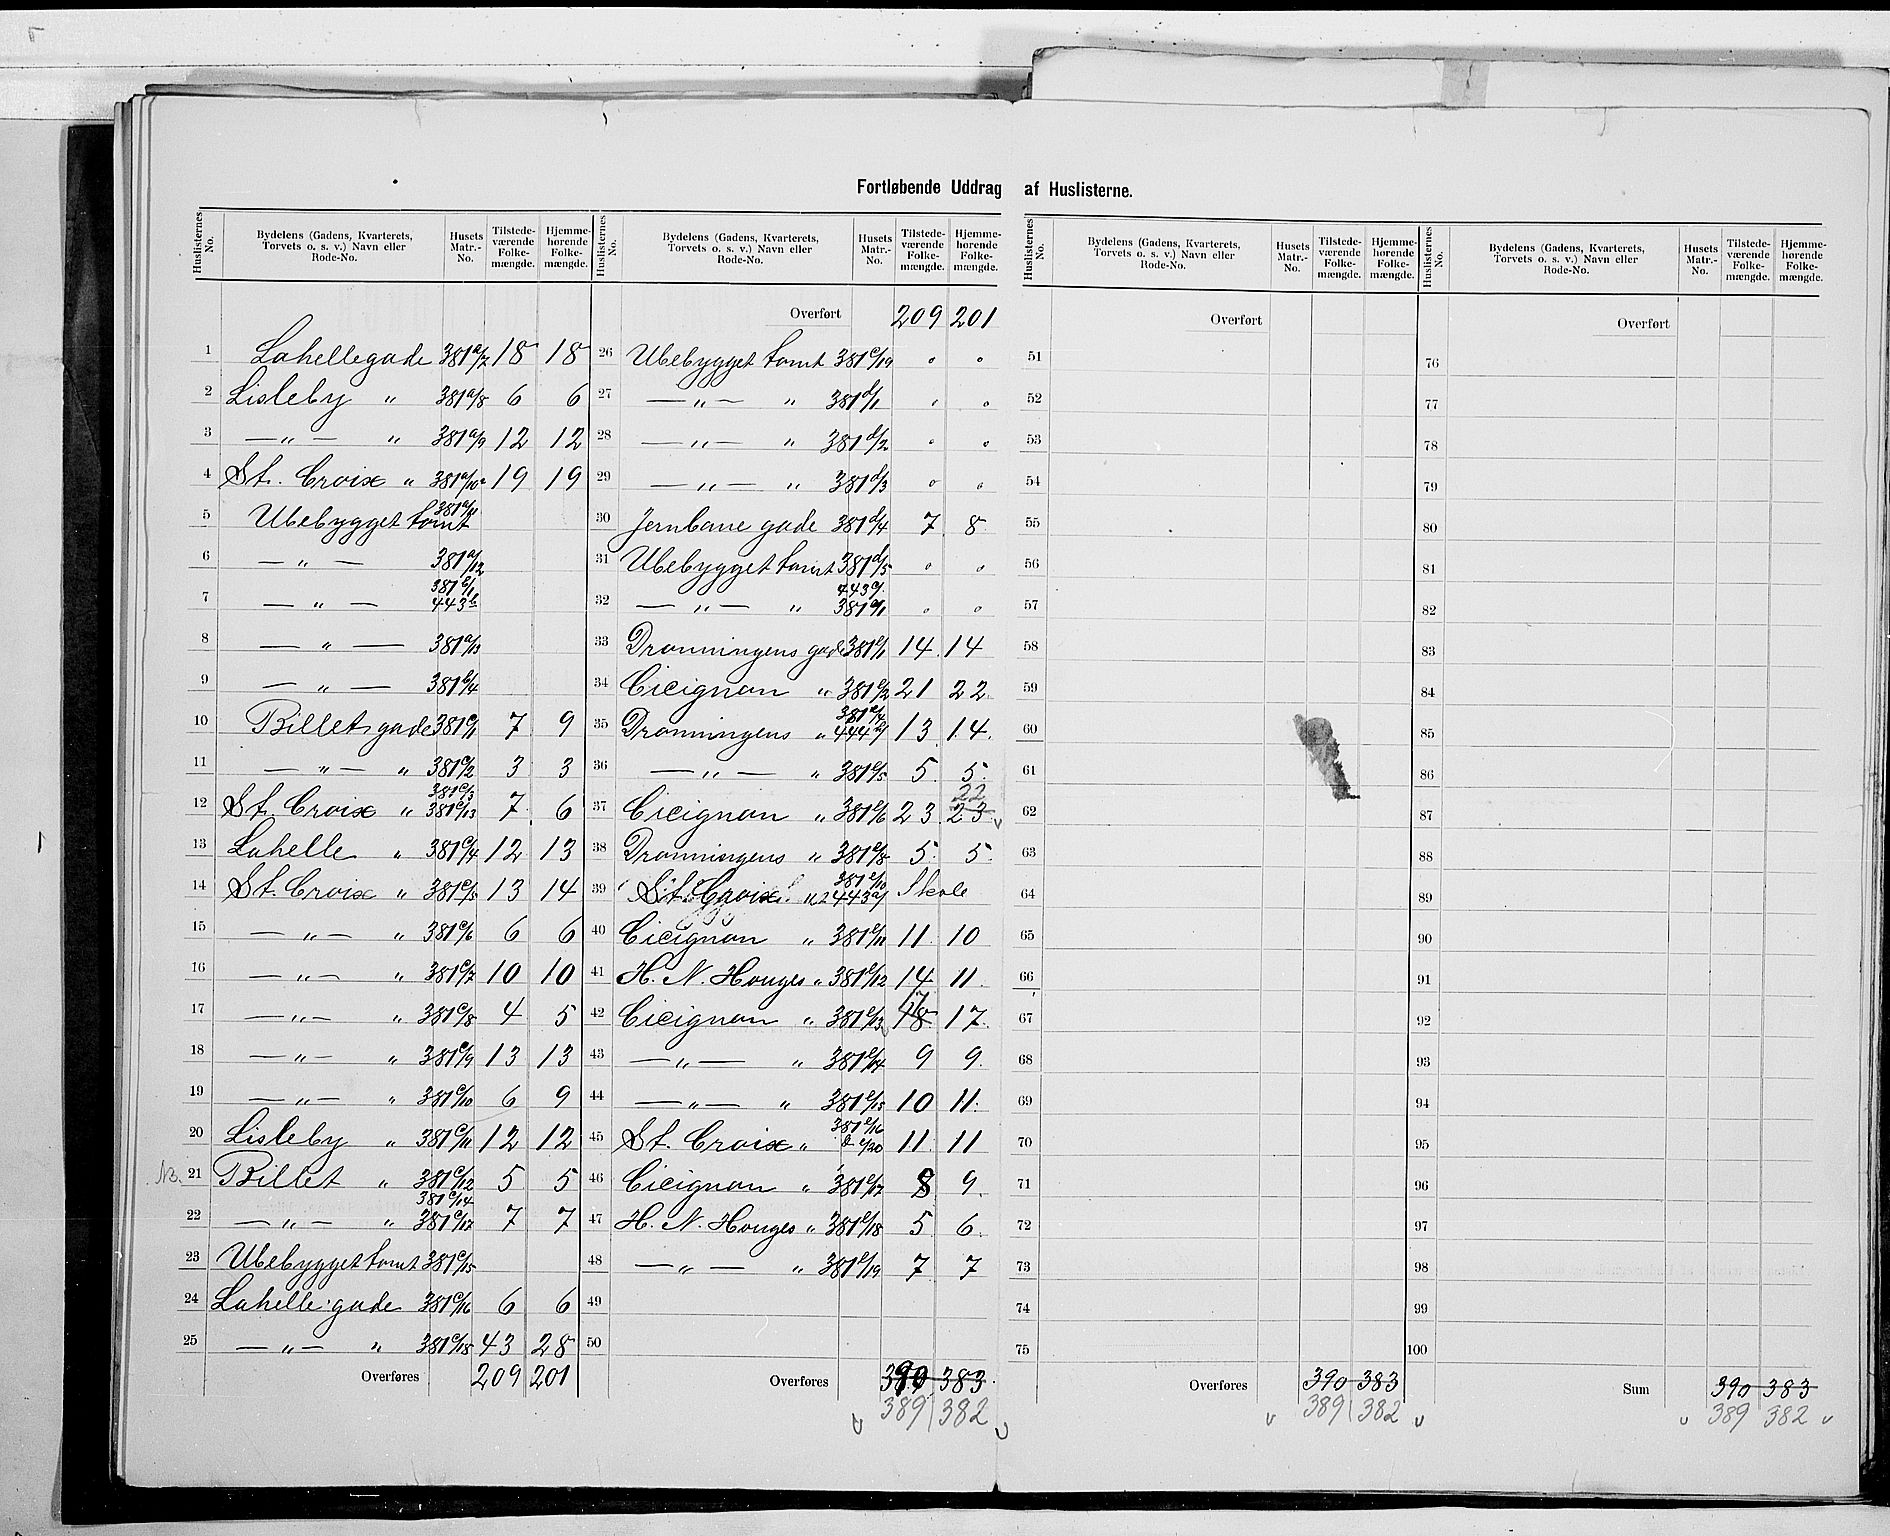 Fortløbende Uddrag af Huslisterne.
Huslisternes No. | Bydelens (Gadens, Kvarterets, Torvets o. s. v.) Navn eller Rode-No. | Husets Matr.-No. | Tilstede-værende Folke-mængde. | Hjemme-hørende Folke-mængde.
1 Lahellegade 381 a/7 18 18
2 Lisleby " 381 a/8 6 6
3 — " — " 381 a/9 12 12
4 St. Croix " 381 a/10a 19 19
5 Ubebygget tomt 381 a/11
6 — " — 381 a/12
7 — " — 381 b/1 443 b
8 — " — 381 a/13
9 — " — 381 b/4
10 Billetsgade 381 c/1 7 9
11 — " — " 381 c/2 3 3
12 St. Croix " 381 c/3 381 c/13 7 6
13 Lahelle " 381 c/4 12 13
14 St. Croix " 381 c/5 13 14
15 — " — " 381 c/6 6 6
16 — " — " 381 c/7 10 10
17 — " — " 381 c/8 4 5
18 — " — " 381 c/9 13 13
19 — " — " 381 c/10 6 9
20 Lisleby " 381 c/11 12 12
NB. 21 Billet " 381 c/12 5 5
22 — " — " 381 c/14 381 c/17 7 7
23 Ubebygget tomt 381 c/15
24 Lahelle gade 381 c/16 6 6
25 — " — " 381 c/18 43 28
Overføres 209 201
Huslisternes No. | Bydelens (Gadens, Kvarterets, Torvets o. s. v.) Navn eller Rode-No. | Husets Matr.-No. | Tilstede-værende Folke-mængde. | Hjemme-hørende Folke-mængde.
Overført 209 201
26 Ubebygget tomt 381 c/19 " "
27 — " — " 381 d/1 " "
28 — " — " 381 d/2 " "
29 — " — " 381 d/3 " "
30 Jernbane gade 381 d/4 7 8
31 Ubebygget tomt 381 d/5 " "
32 — " — " 443 g. 381 e/1 " "
33 Dronningens gade 381 e/1 14 14
34 Cicignon " 381 e/2 21 22
35 Dronningens " 381 e/4 444 a/ 13 14
36 — " — " 381 e/5 5 5
37 Cicignon " 381 e/6 23 23 22
38 Dronningens " 381 e/8 5 5
39 St. Croix " 381 e/10 443 a/ Skole
40 Cicignon " 381 e/11 11 10
41 H. N. Houges " 381 e/12 14 11
42 Cicignon " 381 e/13 18 17 17
43 — " — " 381 e/14 9 9
44 — " — " 381 e/15 10 11
45 St. Croix " 381 e/16 & e/20 11 11
46 Cicignon " 381 e/17 8 9
47 H. N. Houges " 381 e/18 5 6
48 — " — " 381 e/19 7 7
49
50
Overføres 390 383
389 382
Huslisternes No. | Bydelens (Gadens, Kvarterets, Torvets o. s. v.) Navn eller Rode-No. | Husets Matr.-No. | Tilstede-værende Folke-mængde. | Hjemme-hørende Folke-mængde.
Overført
51
52
53
54
55
56
57
58
59
60
61
62
63
64
65
66
67
68
69
70
71
72
73
74
75
Overføres 390 383
389 382
Huslisternes No. | Bydelens (Gadens, Kvarterets, Torvets o. s. v.) Navn eller Rode-No. | Husets Matr.-No. | Tilstede-værende Folke-mængde. | Hjemme-hørende Folke-mængde.
Overført
76
77
78
79
80
81
82
83
84
85
86
87
88
89
90
91
92
93
94
95
96
97
98
99
100
Sum 390 383
389 382